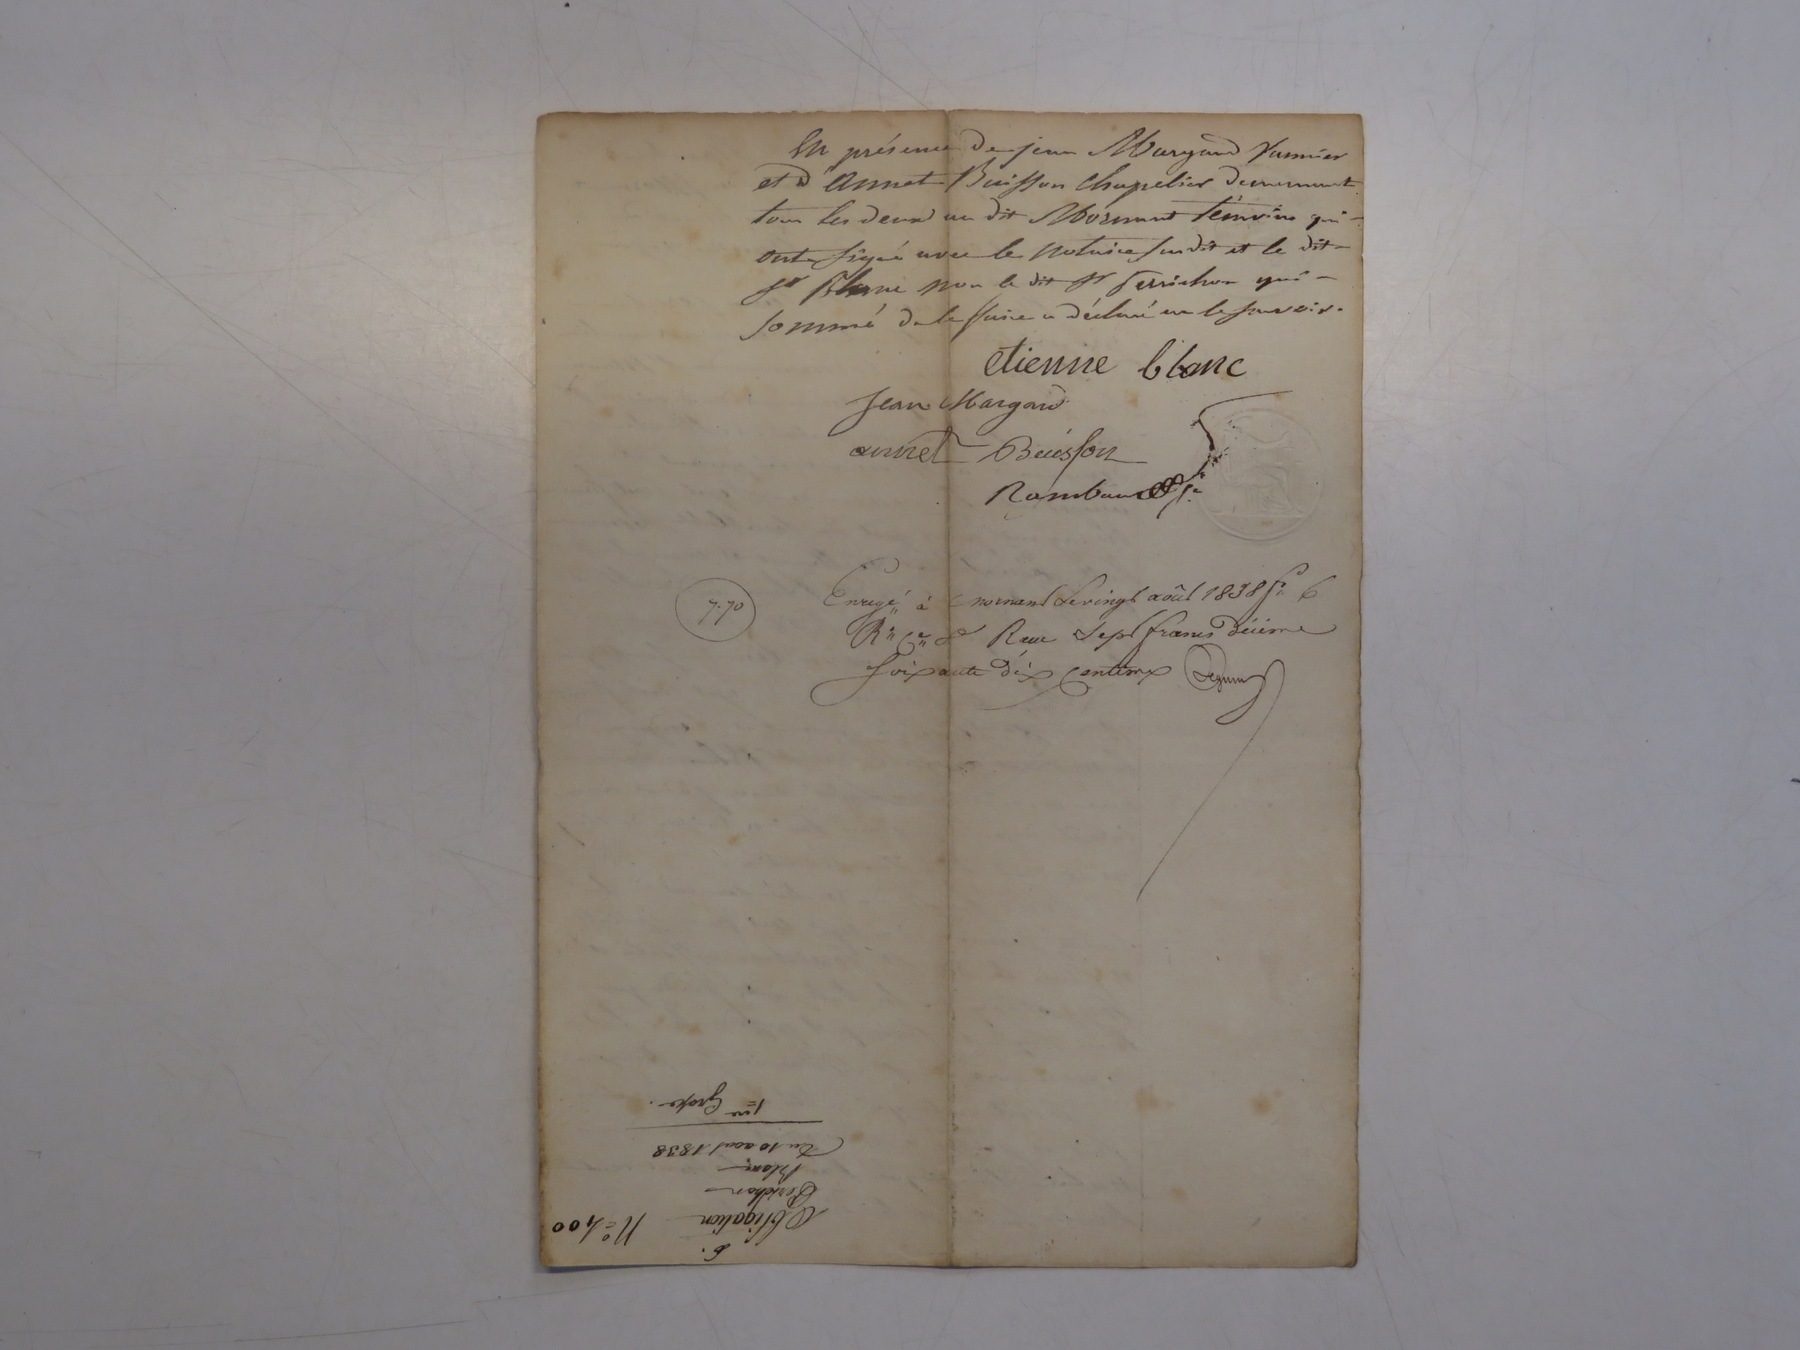 En présence de jean Margand fermier
et d'Annet Buisson chapelier demeurant
tous les deux au dit Mornant témoins qui
ont signé avec le notaire susdit et le dit
sr Blanc non le dit sr Perrichon qui
sommé de le faire a déclaré ne le savoir.
etienne blanc
Jean Margand
annet Buisson
Rambaud
Enregé à mornant le vingt août 1838 fo 6
Ro Reçu sept francs décime
soixante dix centimes
7.70
6.
Obligation
Perichon
Blanc
Du 10 aout 1838
1ere Grosse.
No 400